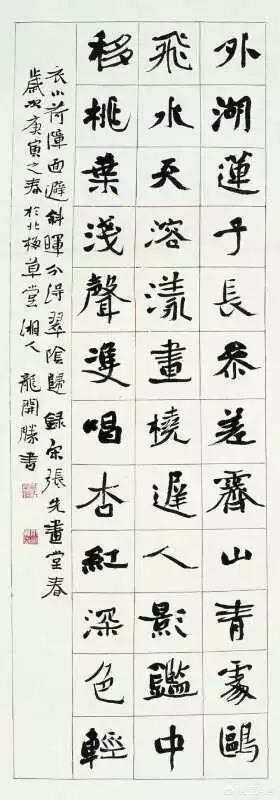 外湖蓮子長參差霽山青處鷗
飛水天溶漾畫橈遲人影鑑中
移桃葉淺聲雙唱杏紅深色輕
衣小荷障面避斜暉分得翠陰歸 錄宋張先畫堂春
歲次庚寅之春於北草堂 湘人 龍開勝書